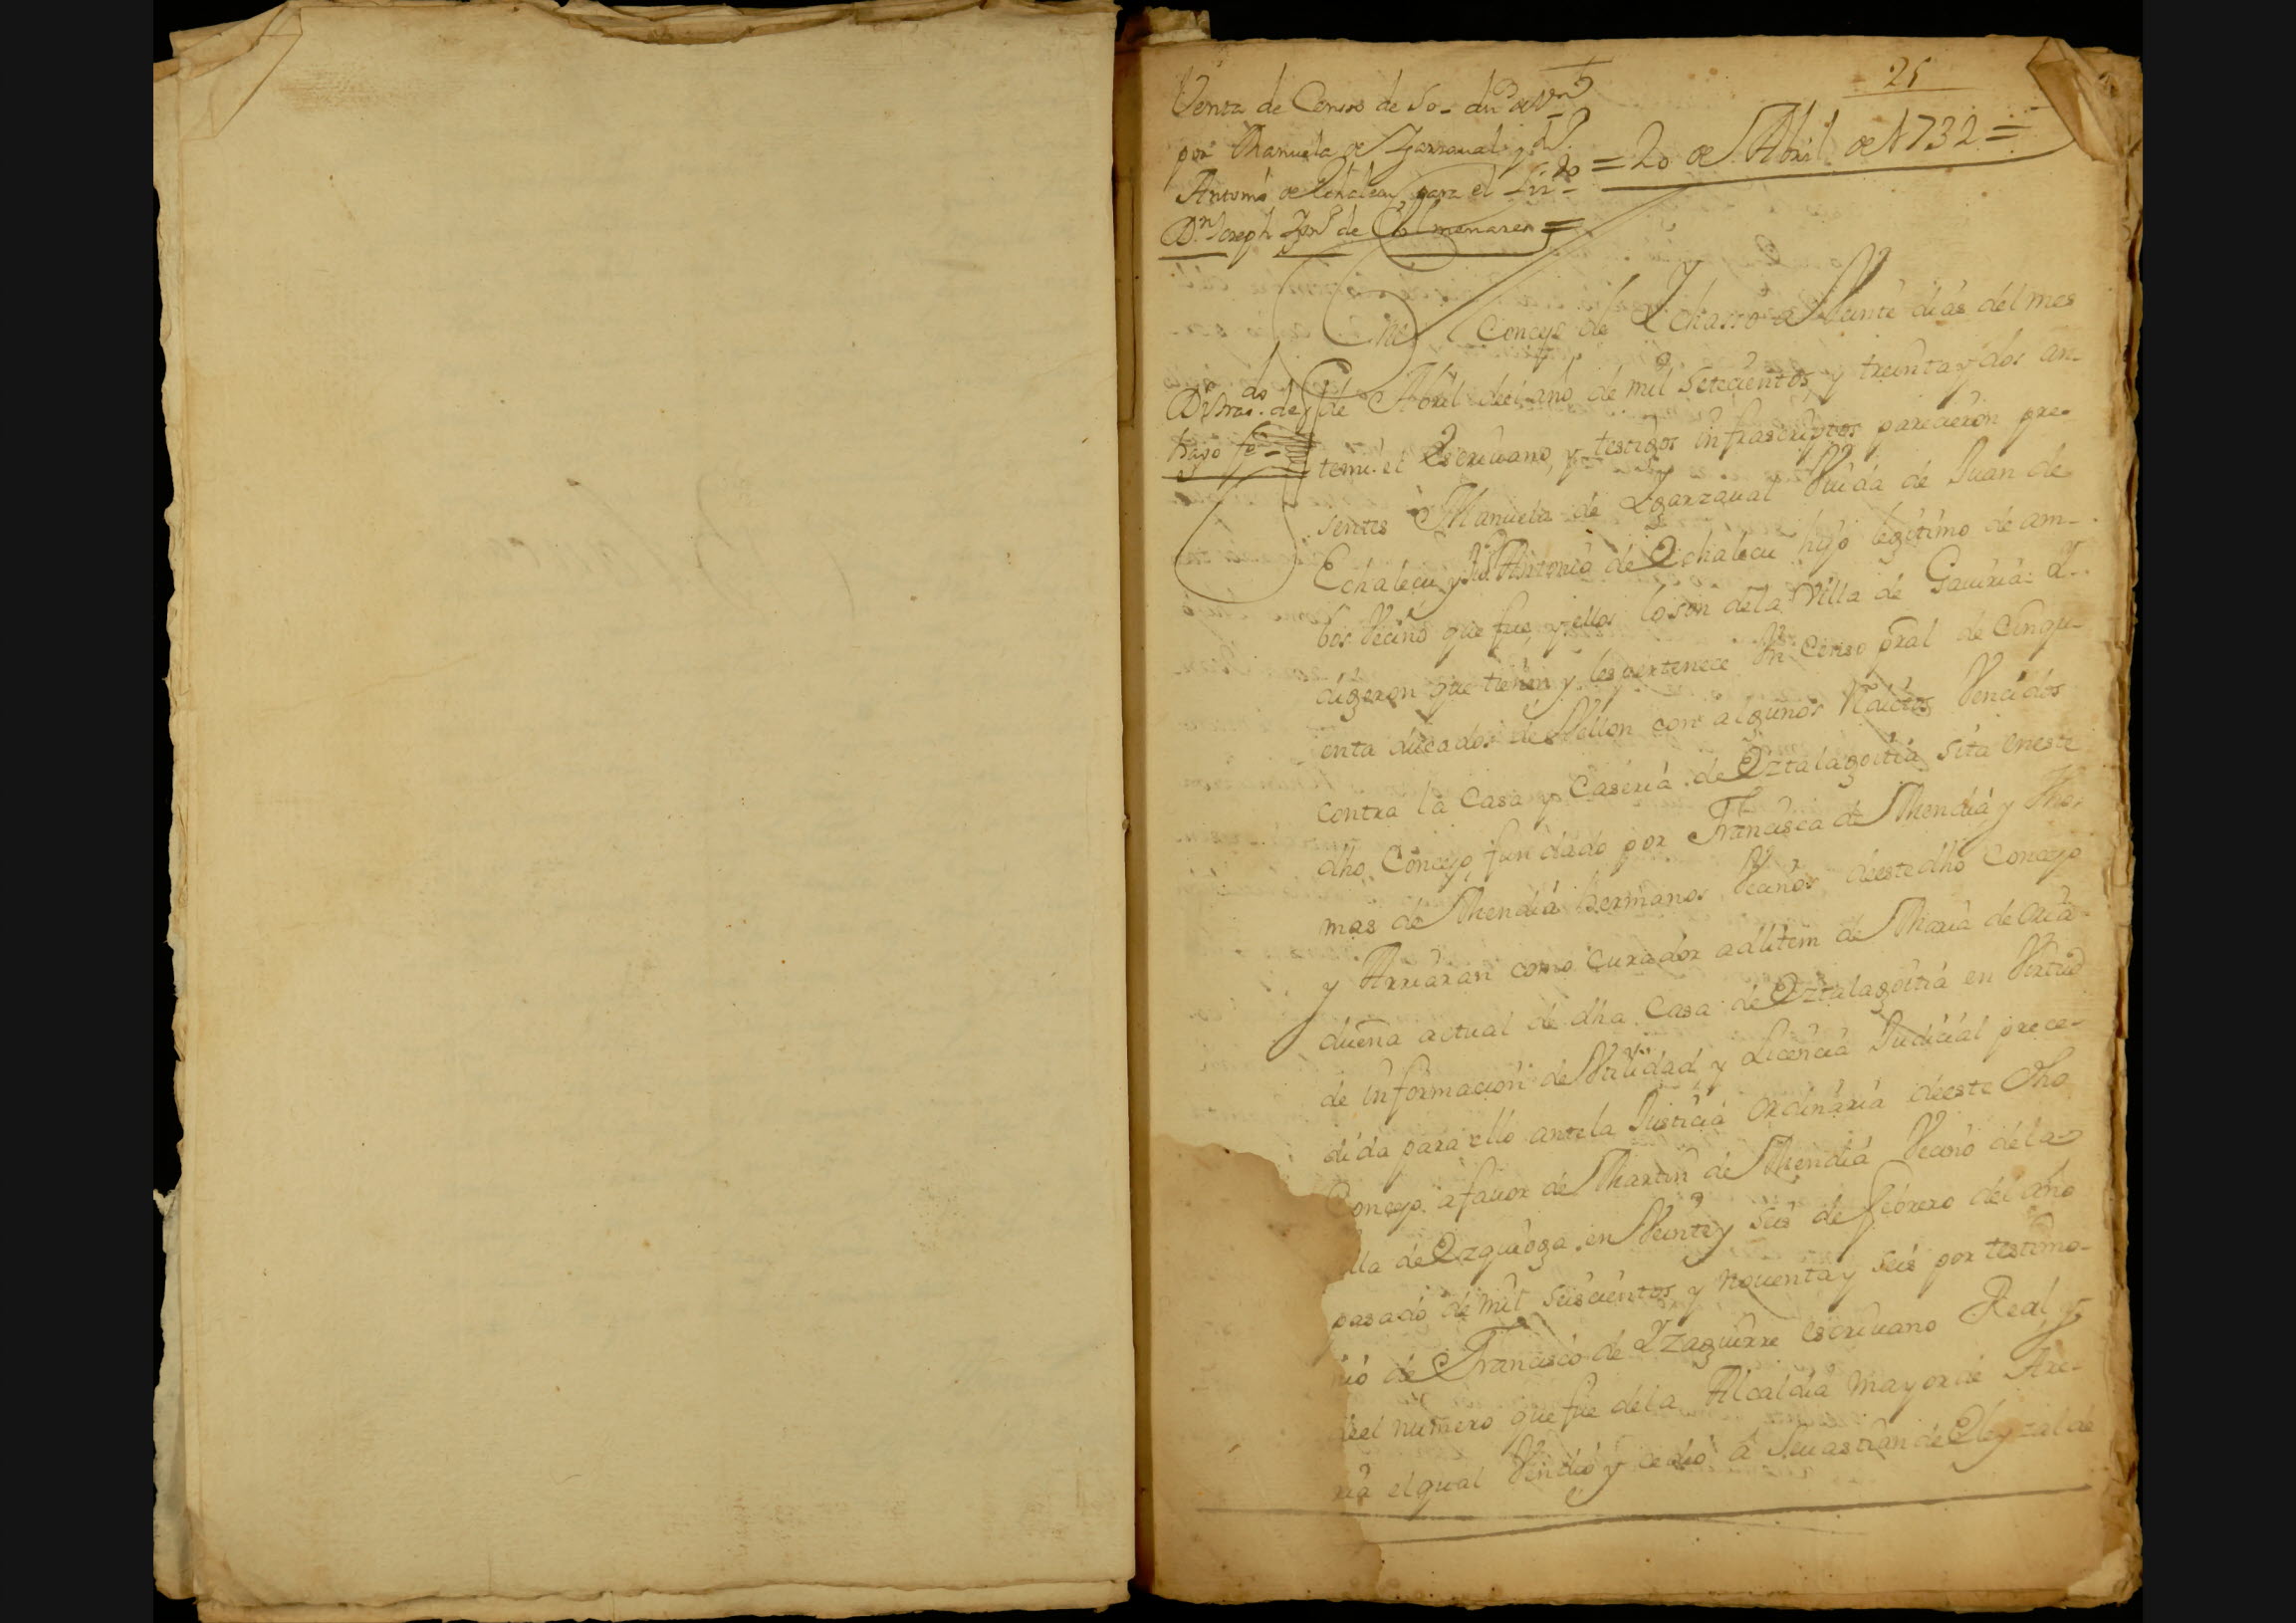 25
Venta de Censo de 50 duc.s de V.on
por Manuela de Ygarzaual y Ju.o
Antonio de Echalecu, para el Liz.do
D.n Joseph Ign.o de Colmenares =
= 20 de Abril de 1732 =
En el Conzejo de Ychasso a Veinte dias del mes
de Abril deel año de mil setecientos, y treinta y dos an-
temi el Escriuano, y testigos infrascriptos parecieron pre-
sentes Manuela de Ygarzaual Viuda de Juan de
Echalecu y Ju.o Antonio de Echalecu hijo legitimo de am-
bos Vecino que fue, y ellos lo son dela Villa de Gauiria: Y
digeron que tienen y les pertenece Vn Censo pral de Cinqu-
enta ducados de Vellon con algunos Raictos Vencidos
contra la Casa y Caseria de Oztalagoitia sita eneste
dho Concejo, fundado por Francisca de Mendia y Tho-
mas de Mendia hermanos Vecinos deeste dho Concejo
y Arriaran como curador adlitem de Maria de Oria
dueña actual de dha Casa de Oztalagoitia en Virtud
de informacion de Vtilidad y Licencia Judicial prece-
dida para ello ante la Justicia Ordinaria deeste dho
Concejo afauor de Martin de Mendia Vecino dela
lla de Ezquioga en Veinte y seis de febrero del año
pasado de mil seiscientos y nouenta y seis por testimo-
nio de Francisco de Yzaguirre escriuano Real, y
deel numero que fue dela Alcaldia mayor de Are-
ria el qual Vendio y cedio a Seuastian de Eleyzalde
do
trajo fe =